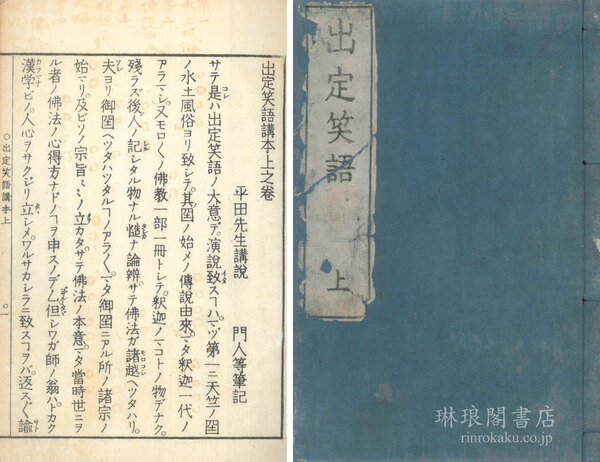 出定笑語講本上之卷
平田先生講說　門人等筆記
サテ是ハ出定笑語ノ大意デ。演說致スコハ。マヅ第一ニ天竺ノ国
ノ水土風俗ヨリ致シテ。其国ノ始メノ傳說由來。マタ釋迦一代ノ
アラマシ。又モロ〱ノ佛敎一部一冊トシテ。釋迦ノマコトノ物デナク。
殘ラズ後人ノ記シタル物ナル慥ナ論辨。サテ佛法ガ諸越ヘツタハリ。
夫ヨリ御国ヘツタハツタルコノアラ〱。マタ御国ニアル所ノ諸宗ノ
始マリ。及ビソノ宗旨〻〻ノ立カタ。サテ佛法ノ本意。マタ當時世ニヲ
ル者ノ佛法ノ心得方ナドノコヲ申スノデ厶。但シワガ師ノ翁ハ。トカク
漢学ビノ。人心ヲサクジリ立シメ。ワルサカシラニ致スコヲバ。返ス〲諭
○出定笑語講本上
○一
出定笑語 上
琳琅閣書店
rinrokaku.co.jp